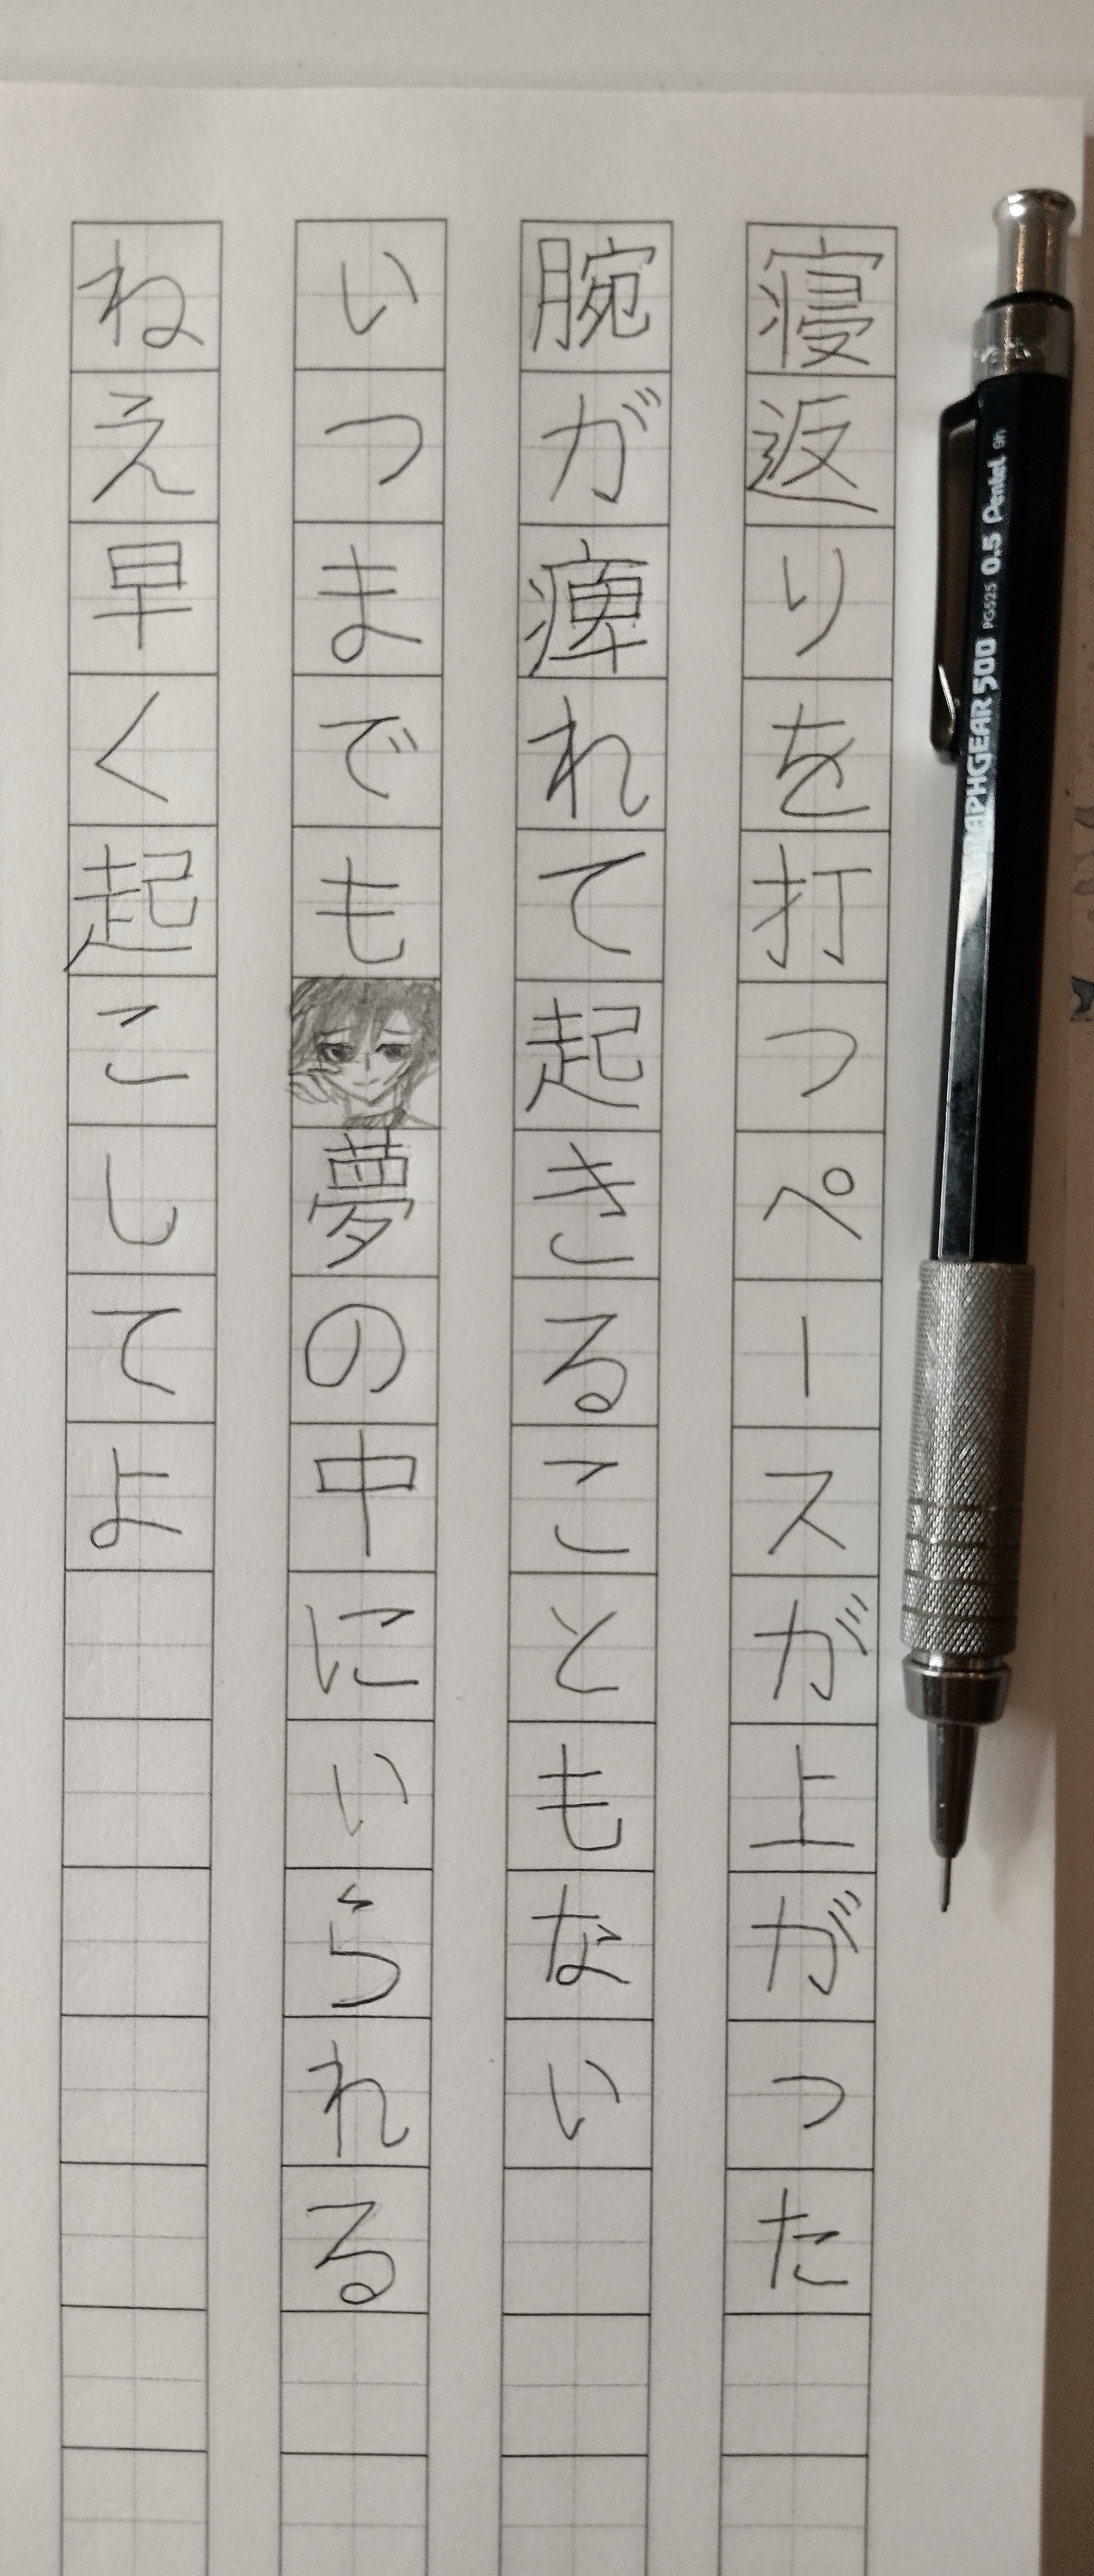 寝返りを打つペースが上がった
腕が痺れて起きることもない
いつまでも夢の中にいられる
ねえ早く起こしてよ
GRAPHGEAR 500 PG525 0.5 Pentel